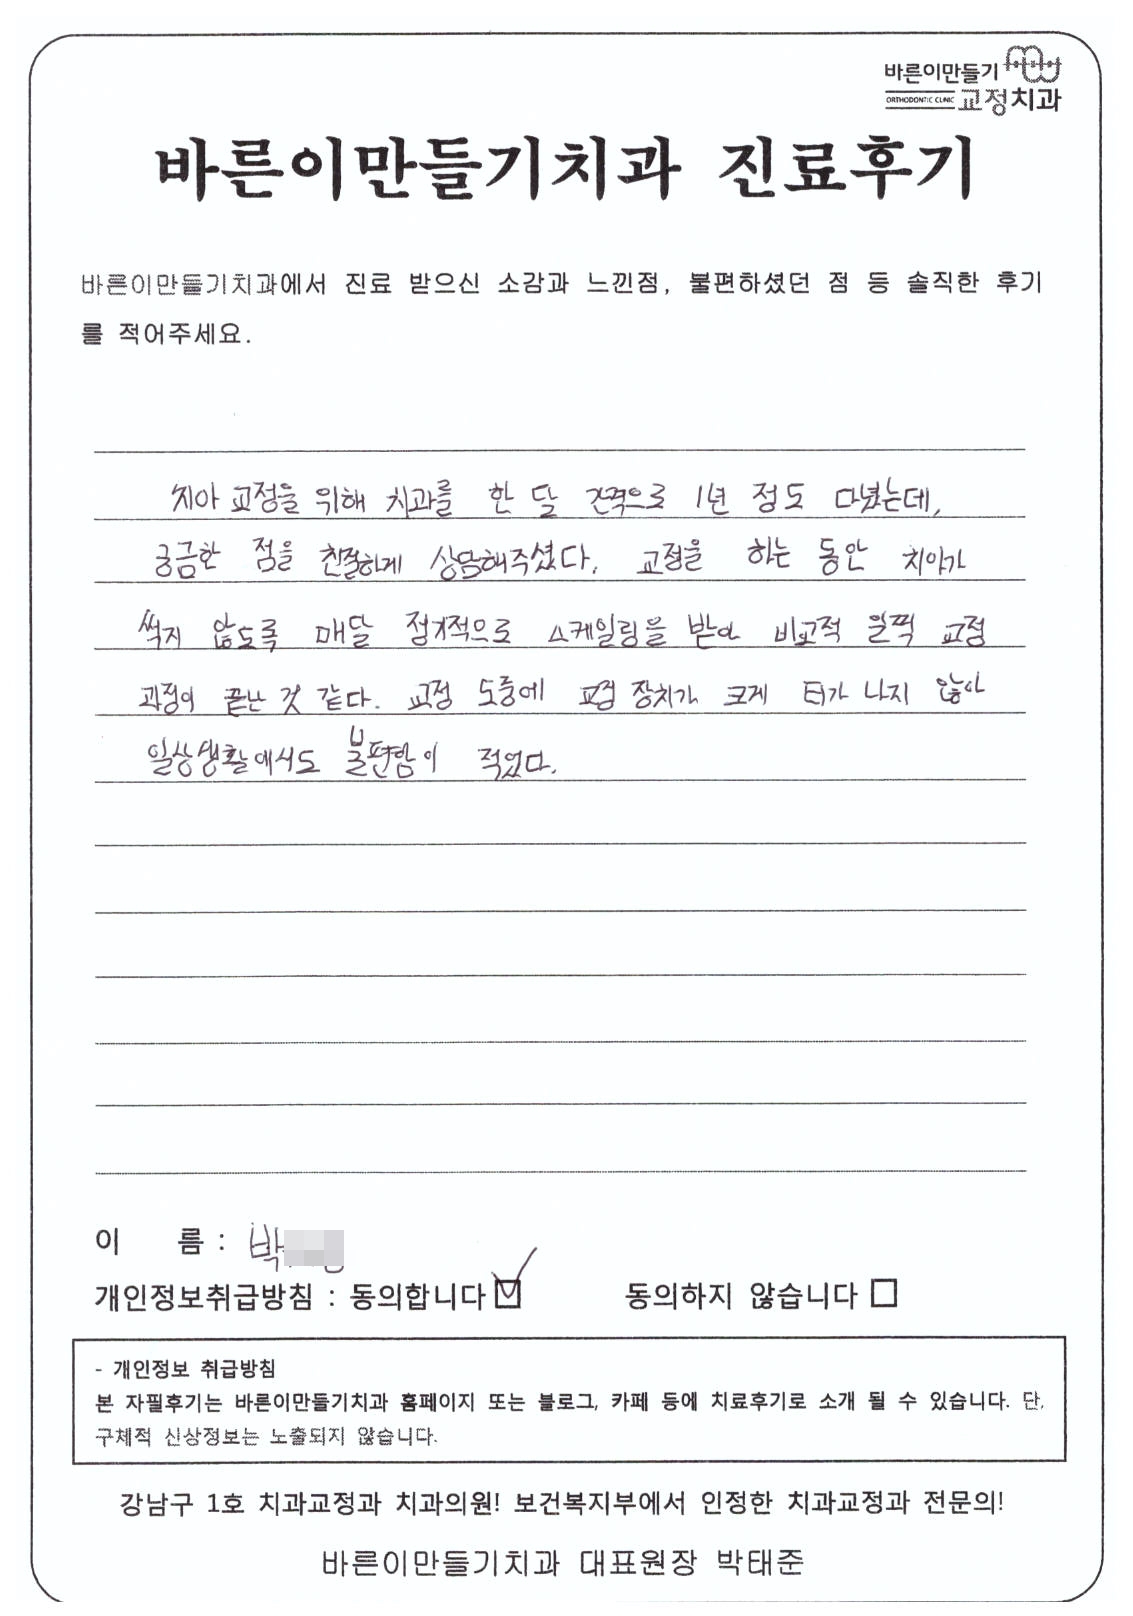 바른이만들기
ORTHODONTIC CLINIC 교정치과
바른이만들기치과 진료후기
바른이만들기치과에서 진료 받으신 소감과 느낀점, 불편하셨던 점 등 솔직한 후기
를 적어주세요.
치아 교정을 위해 치과를 한 달 간격으로 1년 정도 다녔는데,
궁금한 점을 친절하게 상담해주셨다. 교정을 하는 동안 치아가
썩지 않도록 매달 정기적으로 스케일링을 받아 비교적 일찍 교정
과정이 끝난 것 같다. 교정 도중에 교정 장치가 크게 티가 나지 않아
일상생활에서도 불편함이 적었다.
이 름 : 박
개인정보취급방침 : 동의합니다 ☑ 동의하지 않습니다 ☐
- 개인정보 취급방침
본 자필후기는 바른이만들기치과 홈페이지 또는 블로그, 카페 등에 치료후기로 소개 될 수 있습니다. 단,
구체적 신상정보는 노출되지 않습니다.
강남구 1호 치과교정과 치과의원! 보건복지부에서 인정한 치과교정과 전문의!
바른이만들기치과 대표원장 박태준